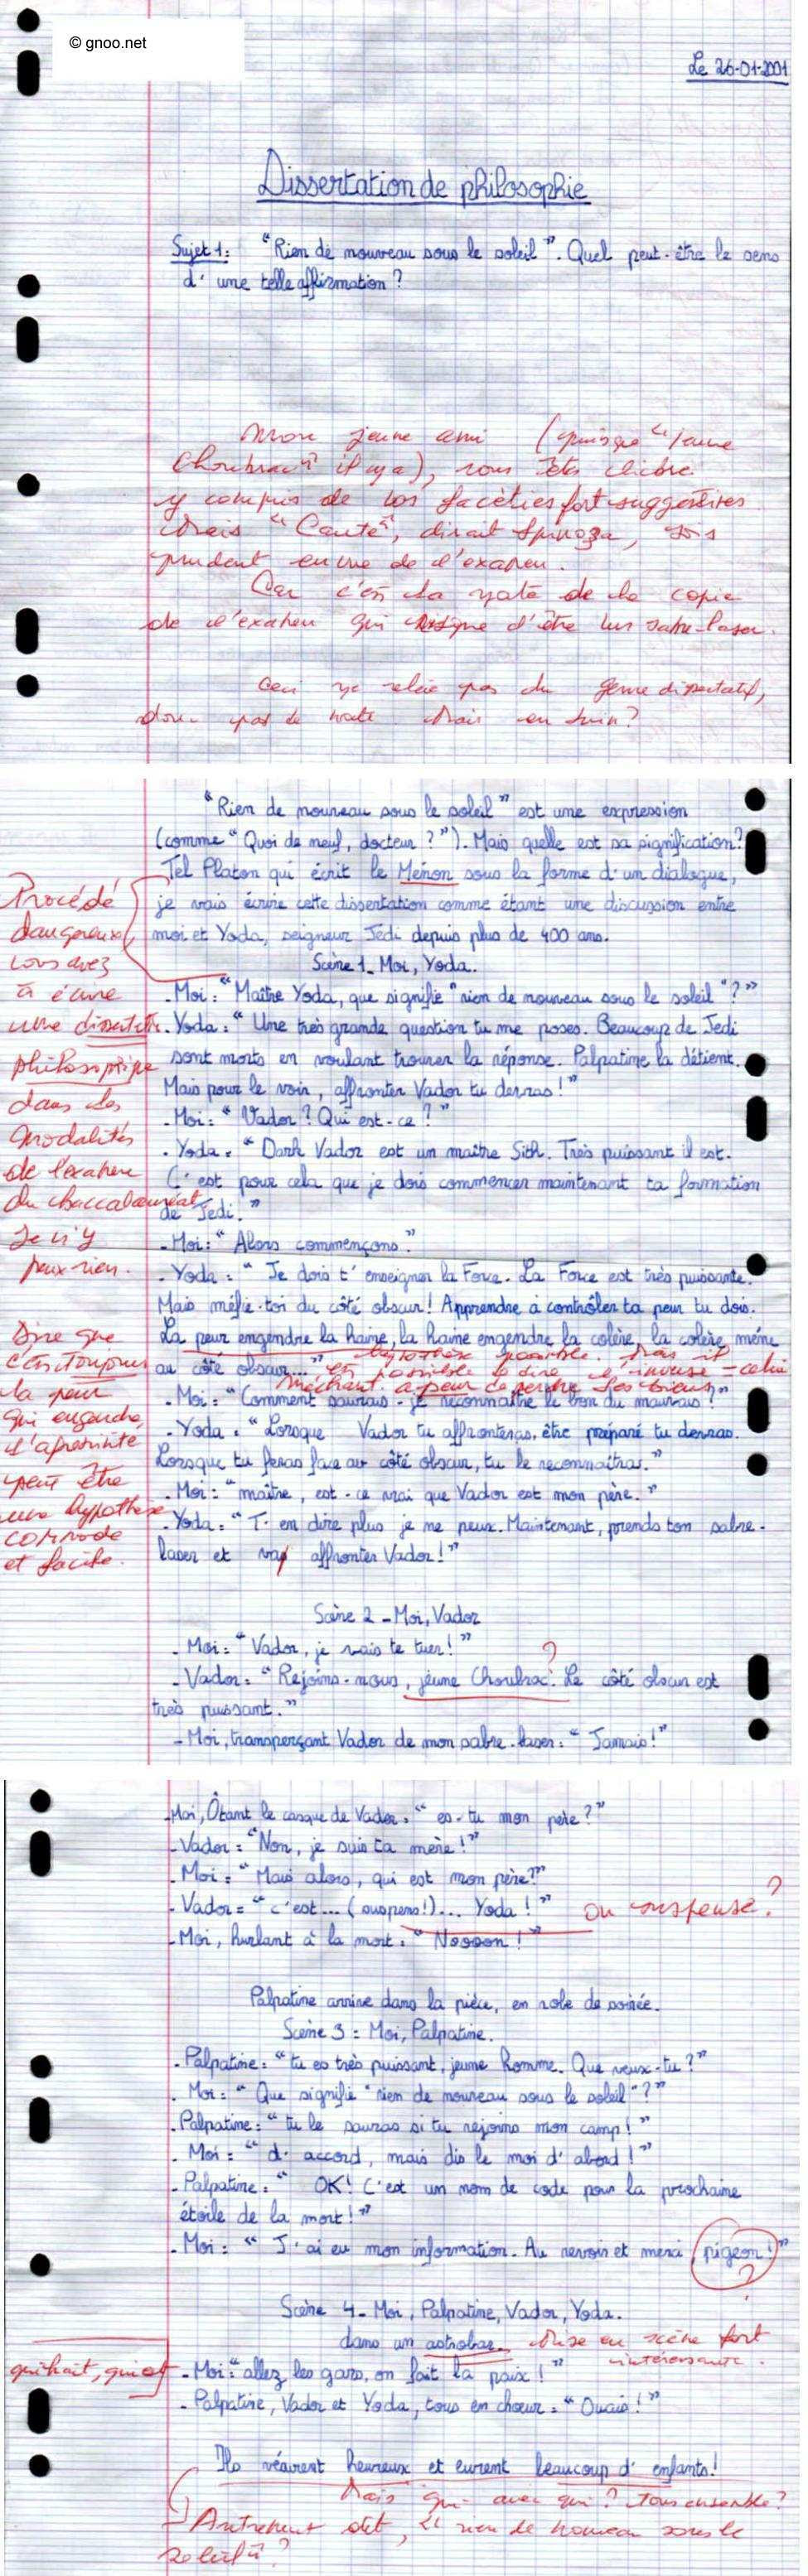 © gnoo.net
Le 26-01-2001
Dissertation de philosophie
Sujet 1: "Rien de nouveau sous le soleil". Quel peut-être le sens
d'une telle affirmation ?
Mon jeune ami (puisque "jeune
Choubrac" il y a), vous êtes libre
y compris de vos facéties fort suggestives
Mais "Caute", dirait Spinoza, sois
prudent en vue de l'examen.
Car c'est la note de la copie
de l'examen qui risque d'être un sabre-laser.
Ceci ne relève pas du genre dissertatif,
donc pas de note. Mais en Juin ?
"Rien de nouveau sous le soleil" est une expression
(comme "Quoi de neuf, docteur ?"). Mais quelle est sa signification?
Tel Platon qui écrit le Ménon sous la forme d'un dialogue,
je vais écrire cette dissertation comme étant une discussion entre
moi et Yoda, seigneur Jedi depuis plus de 400 ans.
Procédé
dangereux,
vous avez
à écrire
une dissertat.
philosophique
dans les
modalités
de l'examen
du baccalauréat
Je n'y
peux rien.
Scène 1_ Moi, Yoda.
- Moi: "Maître Yoda, que signifie "rien de nouveau sous le soleil"?"
- Yoda: "Une très grande question tu me poses. Beaucoup de Jedi
sont morts en voulant trouver la réponse. Palpatine la détient.
Mais pour le voir, affronter Vador tu devras!"
- Moi: "Vador? Qui est-ce?"
- Yoda: "Dark Vador est un maître Sith. Très puissant il est.
C'est pour cela que je dois commencer maintenant ta formation
de Jedi."
- Moi: "Alors commençons."
- Yoda: "Je dois t'enseigner la Force. La Force est très puissante.
Mais méfie-toi du côté obscur! Apprendre à contrôler ta peur tu dois.
La peur engendre la haine, la haine engendre la colère, la colère mène
au côté obscur..."
hypothèse possible. Mais il
est possible de dire l'inverse = celui
méchant a peur de perdre ses biens
Dire que
c'est toujours
la peur
qui engendre
l'agressivité
peut être
une hypothèse
commode
et facile.
- Moi: "Comment saurais-je reconnaître le bon du mauvais?"
- Yoda: "Lorsque Vador tu affronteras, être préparé tu devras.
Lorsque tu feras face au côté obscur, tu le reconnaîtras."
- Moi: "maître, est-ce vrai que Vador est mon père."
- Yoda: "T'en dire plus je ne peux. Maintenant, prends ton sabre-
laser et vas affronter Vador!"
Scène 2 - Moi, Vador
- Moi: "Vador, je vais te tuer!"
?
- Vador: "Rejoins-nous, jeune Choubrac. Le côté obscur est
très puissant."
- Moi, transperçant Vador de mon sabre-laser: "Jamais!"
- Moi, Ôtant le casque de Vador: "es-tu mon père?"
- Vador: "Non, je suis ta mère!"
- Moi: "Mais alors, qui est mon père?"
- Vador: "c'est... (suspens!)... Yoda!"
ou suspense?
- Moi, hurlant à la mort: "Noooon!"
Palpatine arrive dans la pièce, en robe de soirée.
Scène 3: Moi, Palpatine.
- Palpatine: "tu es très puissant, jeune homme. Que veux-tu?"
- Moi: "Que signifie "rien de nouveau sous le soleil"?"
- Palpatine: "tu le sauras si tu rejoins mon camp!"
- Moi: "d'accord, mais dis le moi d'abord!"
- Palpatine: "OK! C'est un nom de code pour la prochaine
étoile de la mort!"
- Moi: "J'ai eu mon information. Au revoir et merci, pigeon!"
?
Scène 4 - Moi, Palpatine, Vador, Yoda.
dans un astrobar.
Mise en scène fort
intéressante.
- Moi: "allez les gars, on fait la paix!"
- Palpatine, Vador et Yoda, tous en chœur: "Ouais!"
Ils vécurent heureux et eurent beaucoup d'enfants!
Mais qui avec qui? Tous ensemble?
Autrement dit, "rien de nouveau sous le
soleil"?